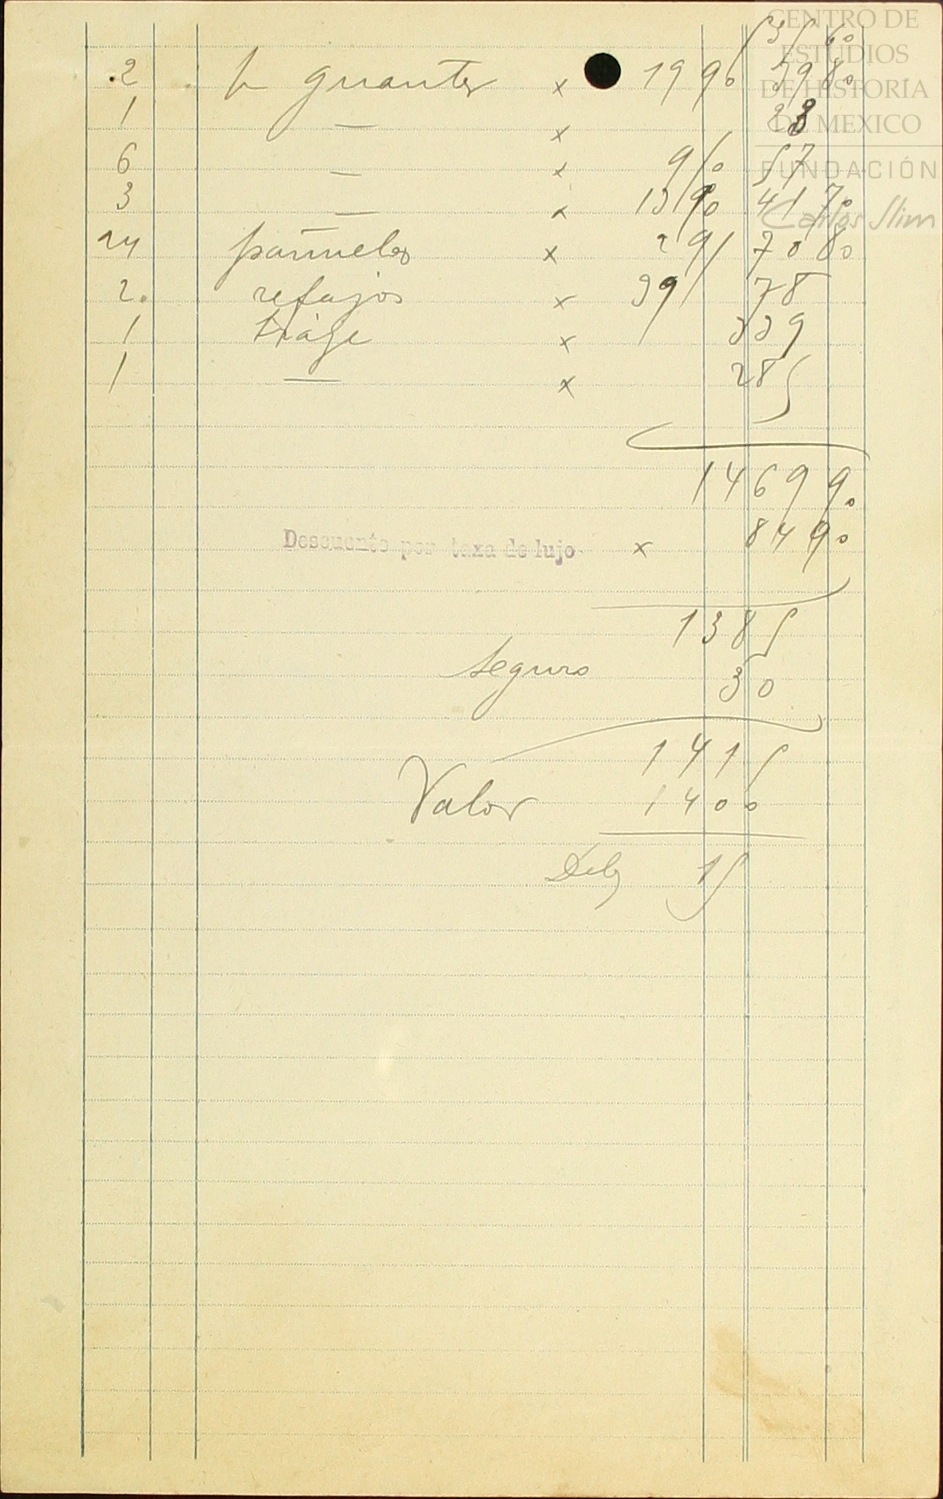 CENTRO DE
ESTUDIOS
DE HISTORÍA
DE MEXICO
FUNDACIÓN
Carlos Slim
535 60
2 p guantes x 19 90 39 80
1 — x 28
6 — x 9 50 57
3 — x 13 90 41 70
24 pañuelos x 2 95 70 80
2 refajos x 39 78
1 traje x 339
1 — x 285
1469 90
Descuento por taxa de lujo x 84 90
1385
Seguro 30
1415
Valor 1400
Debe 15